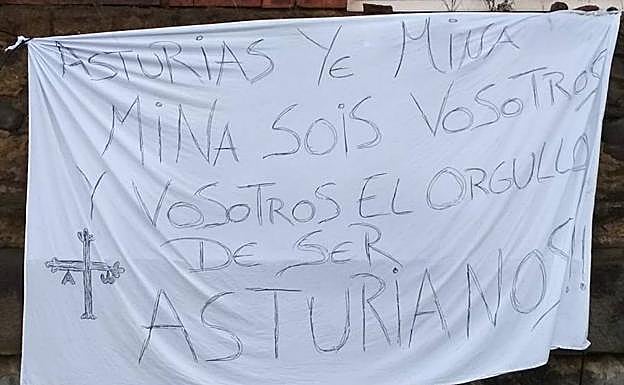 ASTURIAS YE MINA
MINA SOIS VOSOTROS
Y VOSOTROS EL ORGULLO
DE SER
ASTURIANOS!!
A W